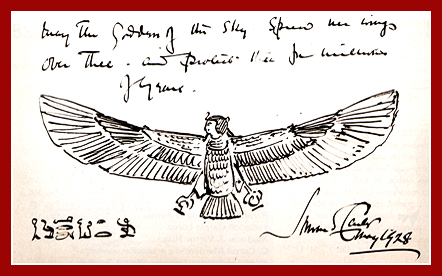 may the Goddess of the Sky Spread her wings
over Thee . and protect Thee for millions
of years .
Howard Carter
May 1928